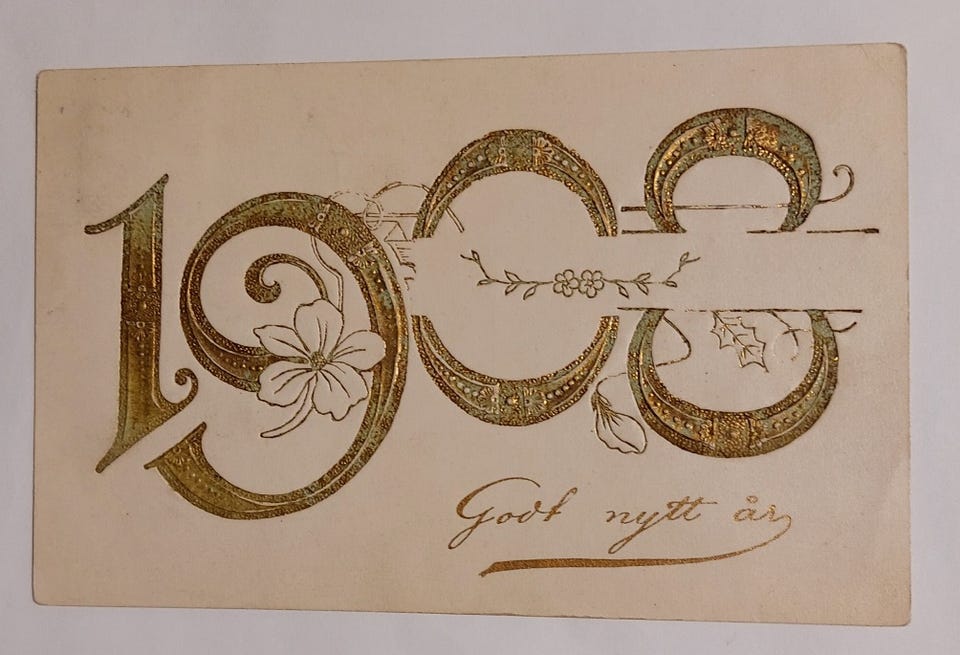 1908
Godt nytt år